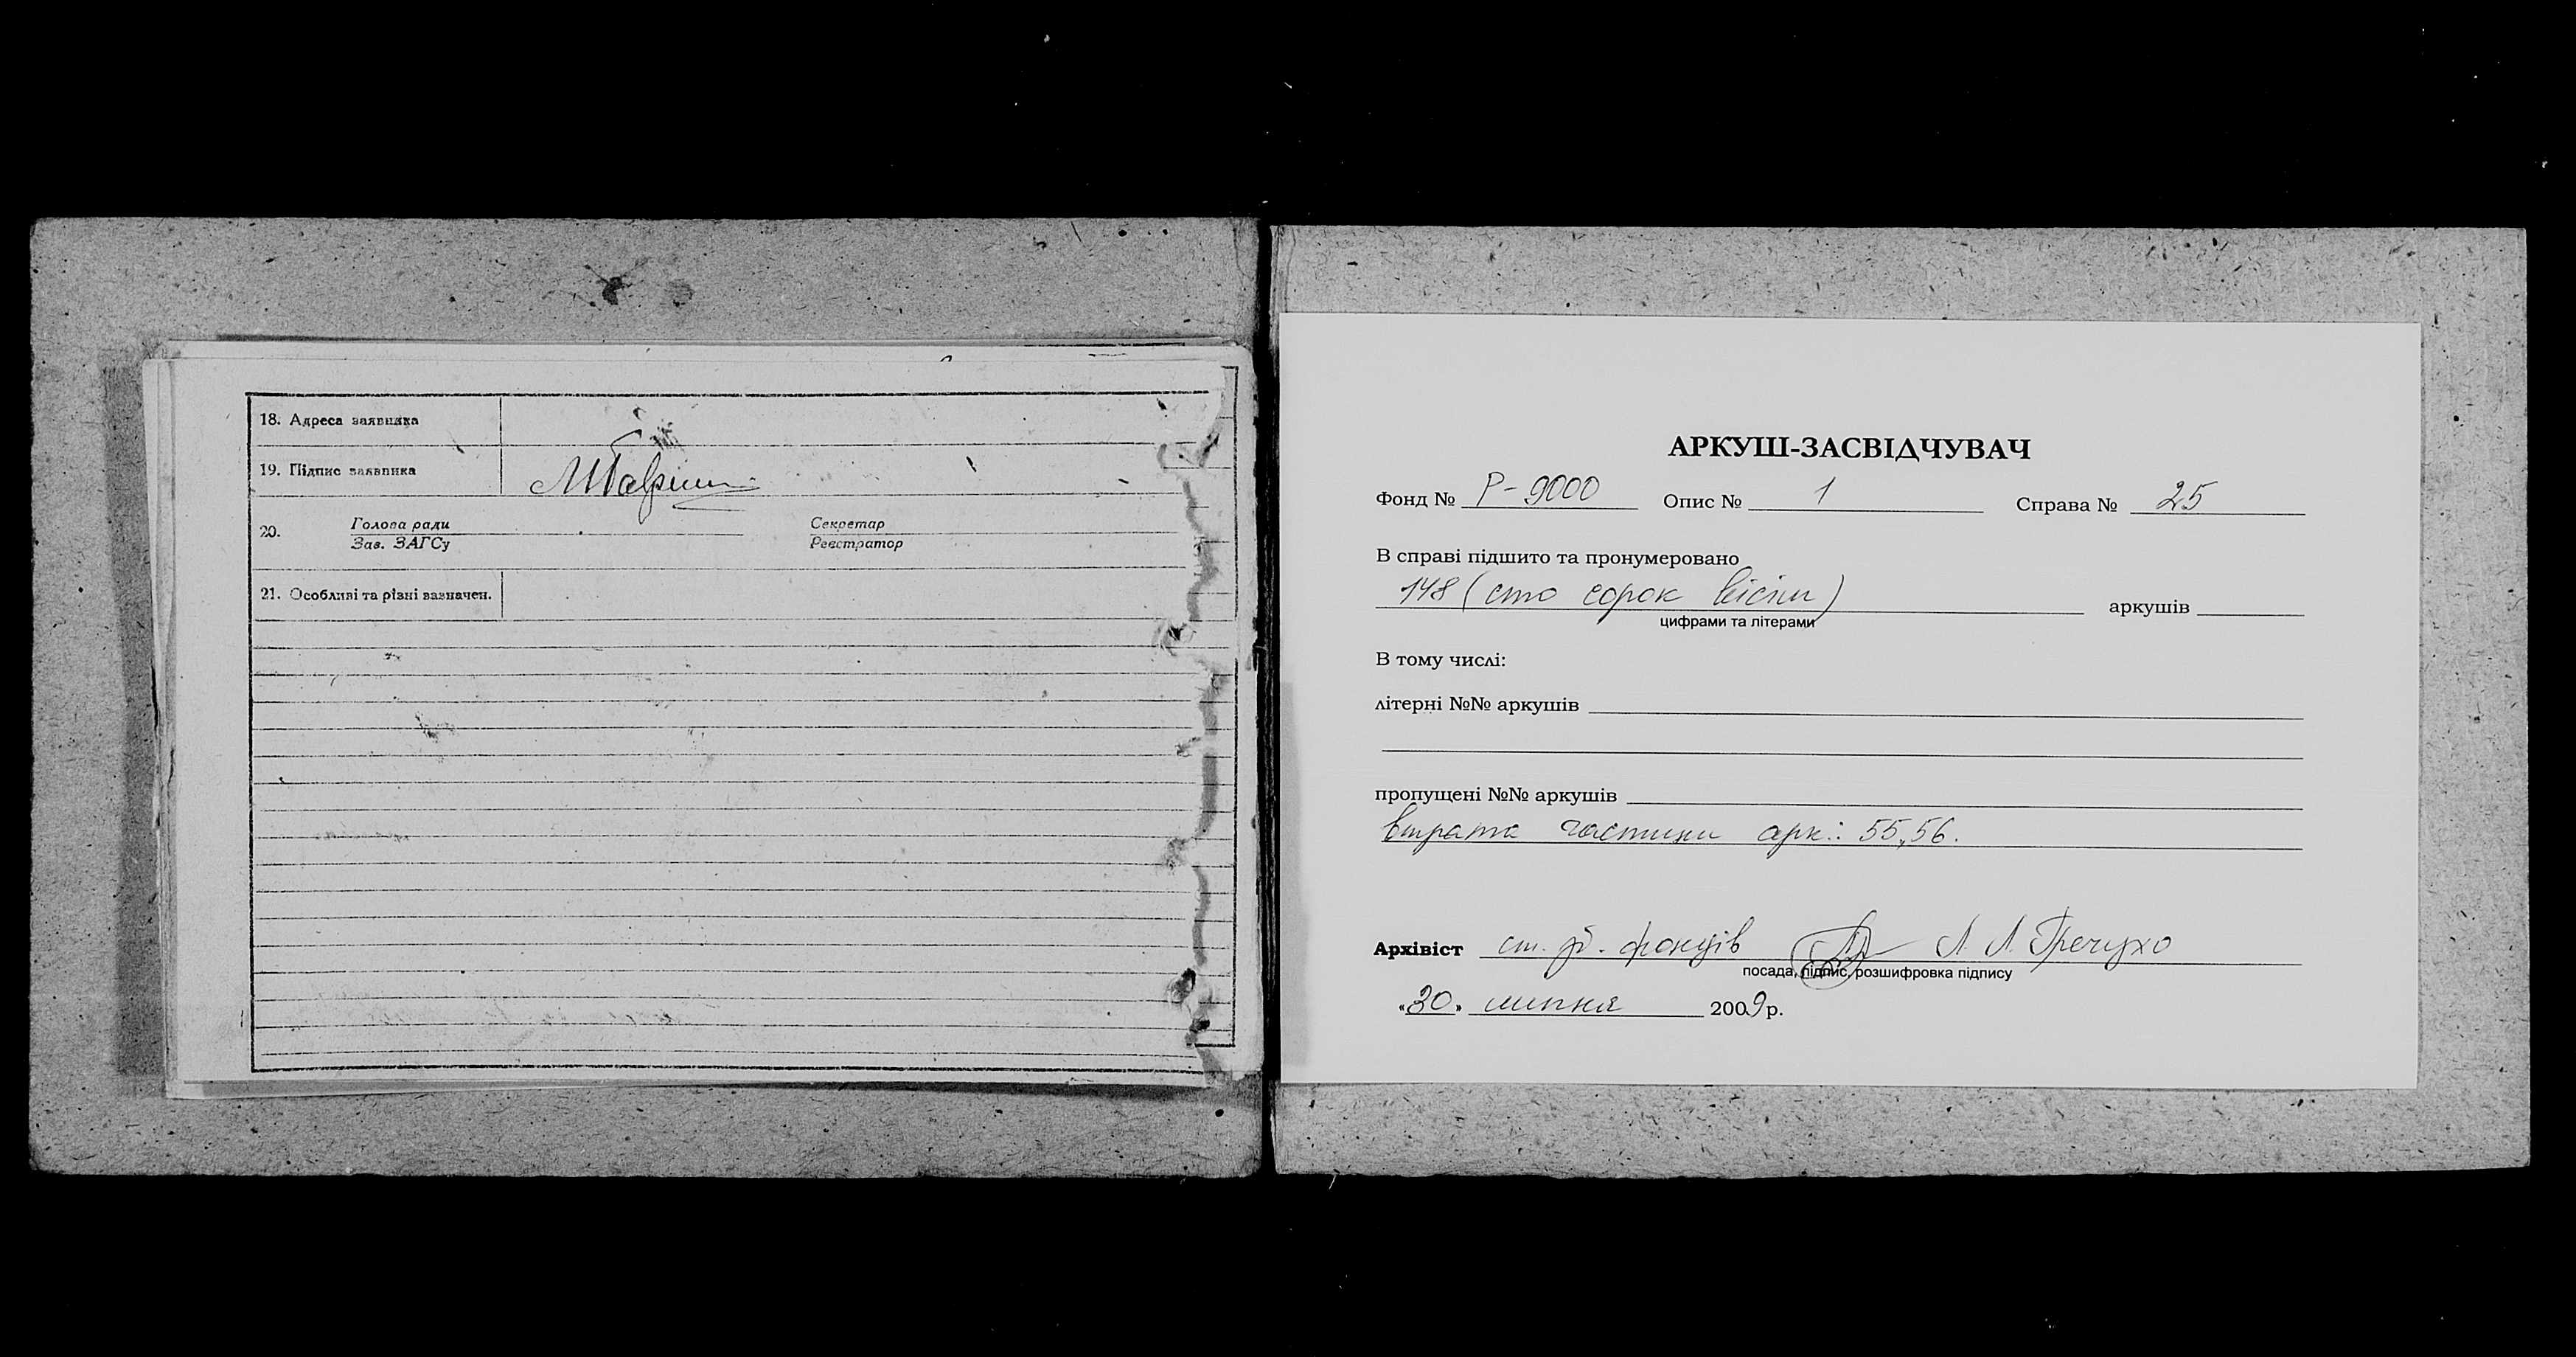 18. Адреса заявника
19. Підпис заявника
20. Голова ради Секретар
Зав. ЗАГСу Реєстратор
21. Особливі та різні зазначен.
АРКУШ-ЗАСВІДЧУВАЧ
Фонд № Р-9000 Опис № 1 Справа № 25
В справі підшито та пронумеровано
148 (сто сорок вісім) аркушів
цифрами та літерами
В тому числі:
літерні №№ аркушів
пропущені №№ аркушів
втрата частини арк.: 55,56.
Архівіст ст. зб. фондів Л Л Гречухо
посада, підпис, розшифровка підпису
«30» липня 2009р.